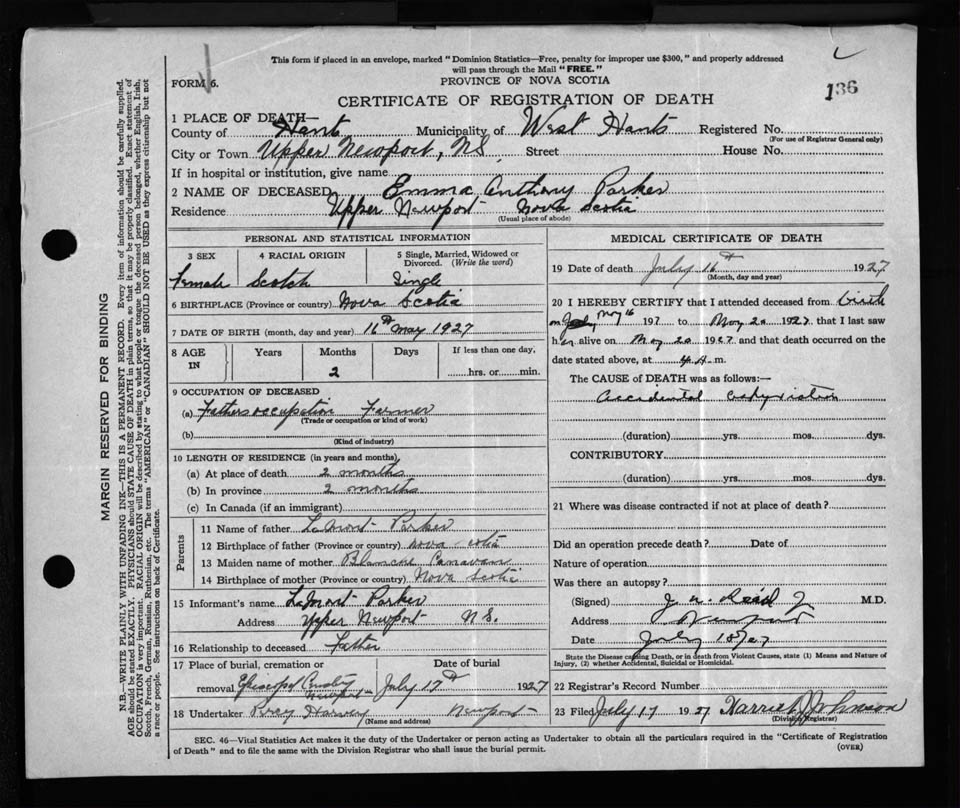 This form if placed in an envelope, marked "Dominion Statistics—Free, penalty for improper use $300," and properly addressed
will pass through the Mail "FREE."
FORM 6.
PROVINCE OF NOVA SCOTIA
136
CERTIFICATE OF REGISTRATION OF DEATH
1 PLACE OF DEATH—
County of Hants Municipality of West Hants Registered No.
(For use of Registrar General only)
City or Town Upper Newport, N.S. Street House No.
If in hospital or institution, give name
2 NAME OF DECEASED Emma Anthony Parker
Residence Upper Newport Nova Scotia
(Usual place of abode)
PERSONAL AND STATISTICAL INFORMATION
3 SEX 4 RACIAL ORIGIN 5 Single, Married, Widowed or Divorced. (Write the word)
Female Scotch Single
6 BIRTHPLACE (Province or country) Nova Scotia
7 DATE OF BIRTH (month, day and year) 16th May 1927
8 AGE IN Years Months Days If less than one day,
2 hrs. or min.
9 OCCUPATION OF DECEASED
(a) Fathers occupation Farmer
(Trade or occupation or kind of work)
(b)
(Kind of industry)
10 LENGTH OF RESIDENCE (in years and months)
(a) At place of death 2 months
(b) In province 2 months
(c) In Canada (if an immigrant)
Parents
11 Name of father LaMont Parker
12 Birthplace of father (Province or country) Nova Scotia
13 Maiden name of mother Blanche Canavan
14 Birthplace of mother (Province or country) Nova Scotia
15 Informant's name LaMont Parker
Address Upper Newport N.S.
16 Relationship to deceased Father
17 Place of burial, cremation or Date of burial
removal Newport July 17th 1927
18 Undertaker Percy Harvey Newport
(Name and address)
MEDICAL CERTIFICATE OF DEATH
19 Date of death July 16th 1927
(Month, day and year)
20 I HEREBY CERTIFY that I attended deceased from birth
on May 16 192 to May 20 1927 that I last saw
her alive on May 20 1927 and that death occurred on the
date stated above, at 4 A m.
The CAUSE OF DEATH was as follows:—
Accidental
(duration) yrs. mos. dys.
CONTRIBUTORY
(duration) yrs. mos. dys.
21 Where was disease contracted if not at place of death?
Did an operation precede death? Date of
Nature of operation
Was there an autopsy?
(Signed) J. W. Reid Jr M.D.
Address Newport
Date July 18/27
State the Disease causing Death, or in death from Violent Causes, state (1) Means and Nature of
Injury, (2) whether Accidental, Suicidal or Homicidal.
22 Registrar's Record Number
23 Filed July 17 1927 Harriet J Johnson
(Division Registrar)
SEC. 46—Vital Statistics Act makes it the duty of the Undertaker or person acting as Undertaker to obtain all the particulars required in the "Certificate of Registration
of Death" and to file the same with the Division Registrar who shall issue the burial permit.
(OVER)
MARGIN RESERVED FOR BINDING
N.B.—WRITE PLAINLY WITH UNFADING INK—THIS IS A PERMANENT RECORD. Every item of information should be carefully supplied.
AGE should be stated EXACTLY. PHYSICIANS should STATE CAUSE OF DEATH in plain terms, so that it may be properly classified. Exact statement of
OCCUPATION is very important. RACIAL ORIGIN will be described by stating to what people or tongue the deceased person belonged, whether English, Irish,
Scotch, French, German, Russian, Ruthenian, etc. The terms "AMERICAN" or "CANADIAN" SHOULD NOT BE USED as they express citizenship but not
a race or people. See instructions on back of Certificate.